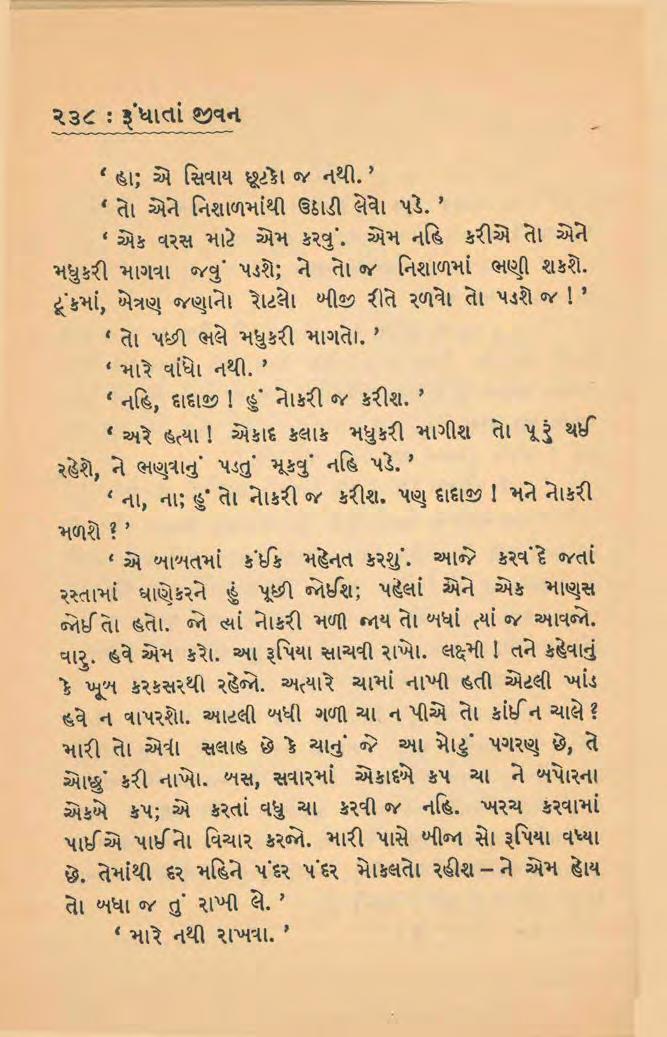 ૨૩૮ : રૂંધાતાં જીવન
‘ હા; એ સિવાય છૂટકો જ નથી. ’
‘ તો એને નિશાળમાંથી ઉઠાડી લેવો પડે. ’
‘ એક વરસ માટે એમ કરવું. એમ નહિ કરીએ તો એને
મધુકરી માગવા જવું પડશે; ને તો જ નિશાળમાં ભણી શકશે.
ટૂંકમાં, બેત્રણ જણાનો રોટલો બીજી રીતે રળવો તો પડશે જ ! ’
‘ તો પછી ભલે મધુકરી માગતો. ’
‘ મારે વાંધો નથી. ’
‘ નહિ, દાદાજી ! હું નોકરી જ કરીશ. ’
‘ અરે હત્યા ! એકાદ કલાક મધુકરી માગીશ તો પૂરું થઈ
રહેશે, ને ભણવાનું પડતું મૂકવું નહિ પડે. ’
‘ ના, ના; હું તો નોકરી જ કરીશ. પણ દાદાજી ! મને નોકરી
મળશે ? ’
‘ એ બાબતમાં કંઈક મહેનત કરશું. આજે કરવંદે જતાં
રસ્તામાં ધાણેકરને હું પૂછી જોઈશ; પહેલાં એને એક માણસ
જોઈતો હતો. જો ત્યાં નોકરી મળી જાય તો બધાં ત્યાં જ આવજો.
વારુ. હવે એમ કરો. આ રૂપિયા સાચવી રાખો. લક્ષ્મી ! તને કહેવાનું
કે ખૂબ કરકસરથી રહેજો. અત્યારે ચામાં નાખી હતી એટલી ખાંડ
હવે ન વાપરશો. આટલી બધી ગળી ચા ન પીએ તો કાંઈ ન ચાલે ?
મારી તો એવી સલાહ છે કે ચાનું જે આ મોટું પગરણ છે, તે
ઓછું કરી નાખો. બસ, સવારમાં એકાદબે કપ ચા ને બપોરના
એકબે કપ; એ કરતાં વધુ ચા કરવી જ નહિ. ખરચ કરવામાં
પાઈએ પાઈનો વિચાર કરજો. મારી પાસે બીજા સો રૂપિયા વધ્યા
છે. તેમાંથી દર મહિને પંદર પંદર મોકલતો રહીશ – ને એમ હોય
તો બધા જ તું રાખી લે. ’
‘ મારે નથી રાખવા. ’